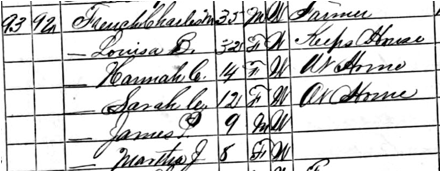 93 92 French Charles M 35 M W Farmer
— Louisa B. F W Keeps House
— Hannah C. 14 F W At Home
— Sarah 12 F W At Home
— James P 9 M W
— Martha J 8 F W